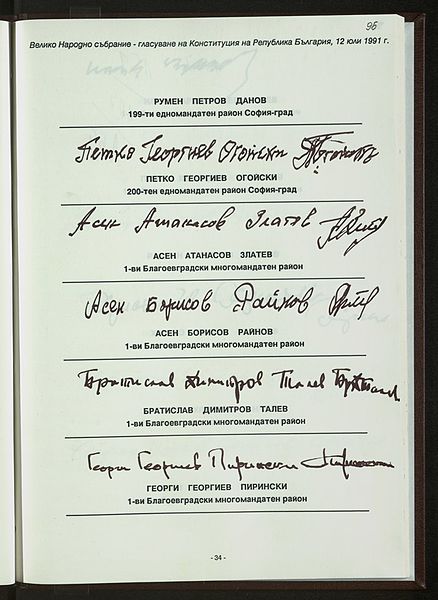 96
Велико Народно събрание - гласуване на Конституция на Република България, 12 юли 1991 г.
РУМЕН ПЕТРОВ ДАНОВ
199-ти едномандатен район София-град
Петко Георгиев Огойски
ПЕТКО ГЕОРГИЕВ ОГОЙСКИ
200-тен едномандатен район София-град
Асен Атанасов Златев
АСЕН АТАНАСОВ ЗЛАТЕВ
1-ви Благоевградски многомандатен район
Асен Борисов Райнов
АСЕН БОРИСОВ РАЙНОВ
1-ви Благоевградски многомандатен район
Братислав Димитров Талев
БРАТИСЛАВ ДИМИТРОВ ТАЛЕВ
1-ви Благоевградски многомандатен район
Георги Георгиев Пирински
ГЕОРГИ ГЕОРГИЕВ ПИРИНСКИ
1-ви Благоевградски многомандатен район
- 34 -